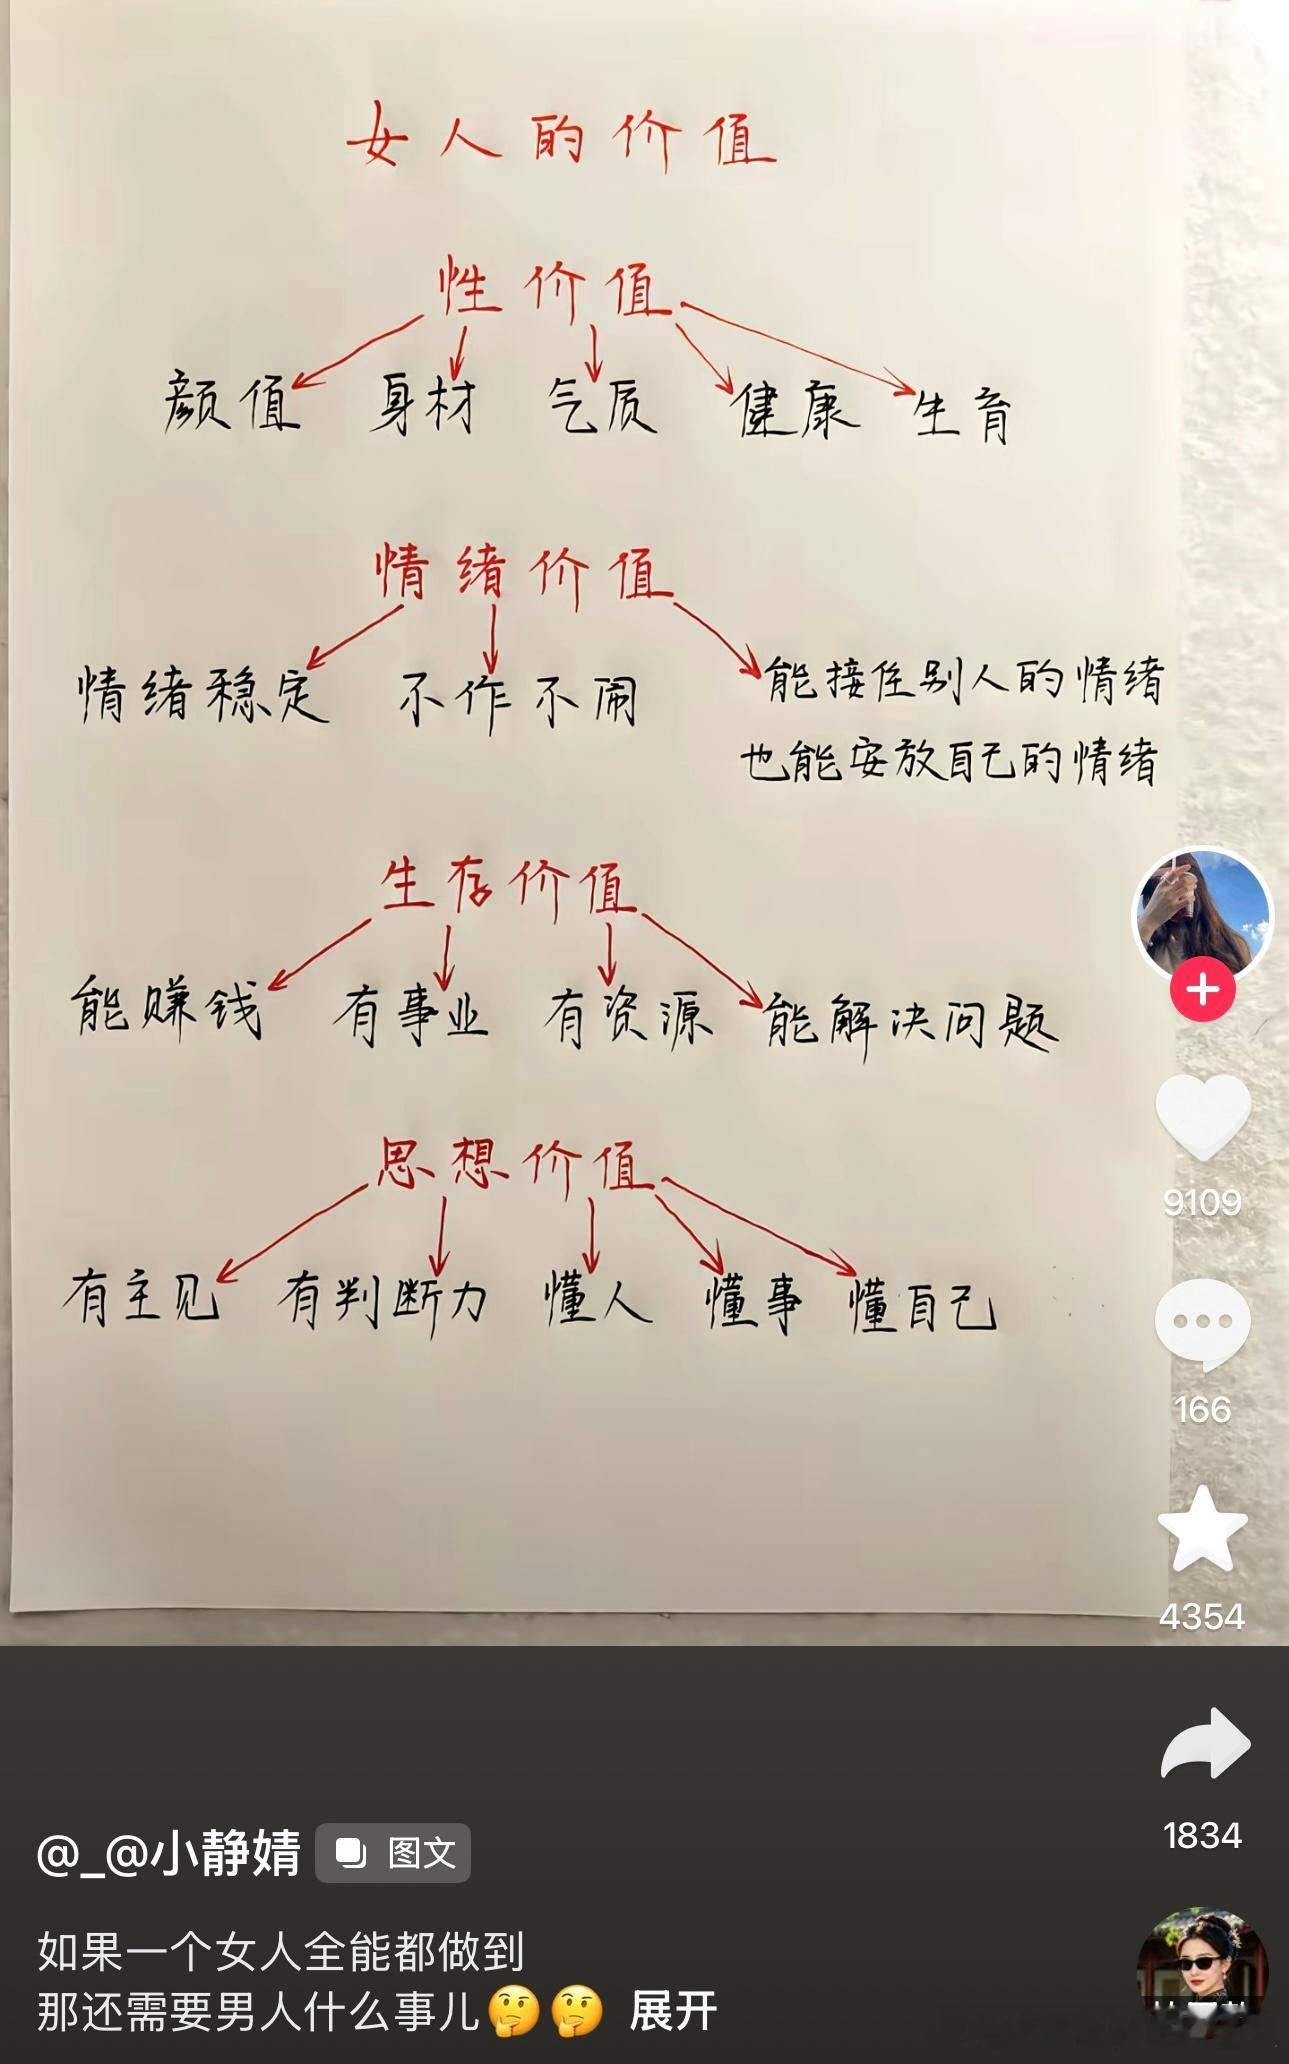 女人的价值
性价值
颜值 身材 气质 健康 生育
情绪价值
情绪稳定 不作不闹 能接住别人的情绪
也能安放自己的情绪
生存价值
能赚钱 有事业 有资源 能解决问题
思想价值
有主见 有判断力 懂人 懂事 懂自己
9109
166
4354
1834
@_@小静婧 图文
如果一个女人全能都做到
那还需要男人什么事儿🤔🤔 展开